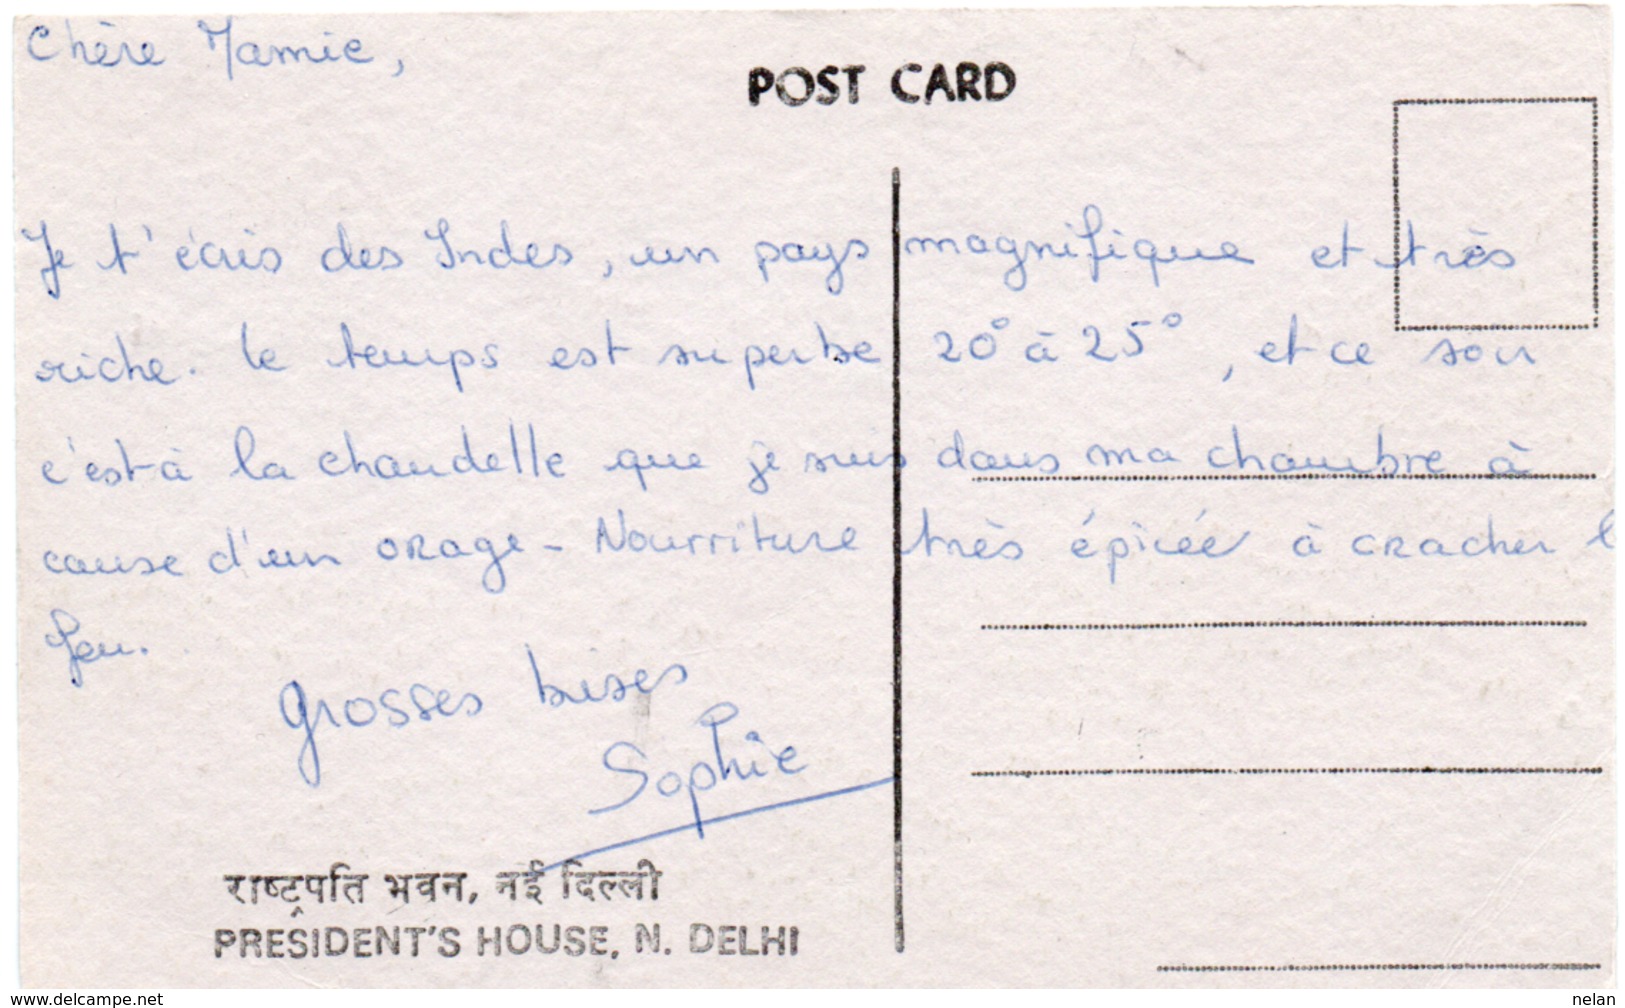 Chère Mamie,
POST CARD
Je t'écris des Indes, un pays magnifique et très
riche. Le temps est superbe 20° à 25°, et ce soir
c'est à la chandelle que je suis dans ma chambre à
cause d'un orage - Nourriture très épicée à cracher l
feu.
Grosses bises
Sophie
राष्ट्रपति भवन, नई दिल्ली
PRESIDENT'S HOUSE, N. DELHI
www.delcampe.net
nelan